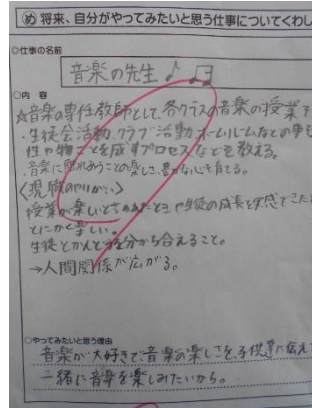 め 将来、自分がやってみたいと思う仕事についてくわし
◎仕事の名前
音楽の先生♪♫
○内 容
☆音楽の専任教師として、各クラスの音楽の授業を
・生徒会活動、クラブ活動、ホームルームなどの事も
性や物ごとを成すプロセスなども教える。
・音楽に触れあうことの楽しさ、豊かな心を育てる。
〈現職のやりがい〉
授業が楽しいと や生徒の成長を実感できた
とにかく楽しい。
生徒とかんどうを分かち合えること。
→人間関係が広がる。
○やってみたいと思う理由
音楽が大好きで、音楽の楽しさを子供達に伝え
一緒に音楽を楽しみたいから。